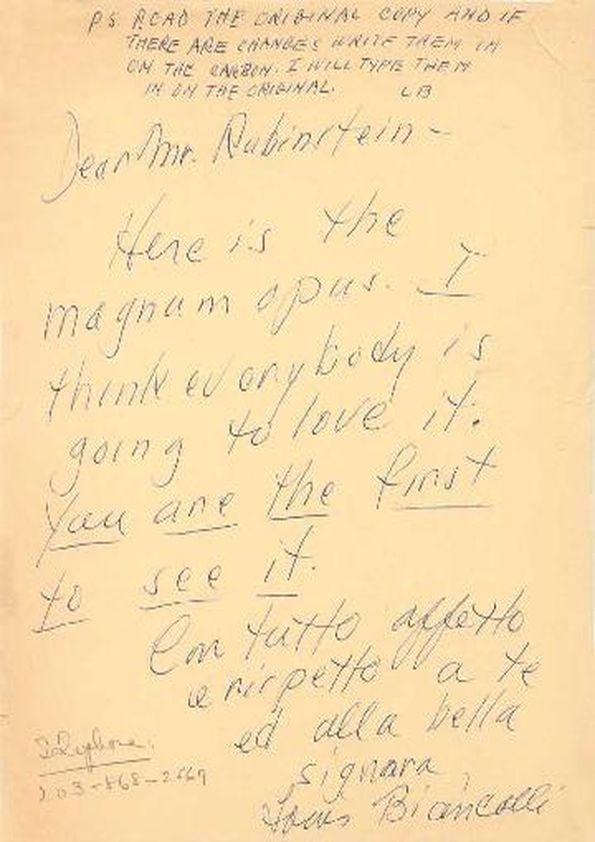 PS READ THE ORIGINAL COPY AND IF
THERE ARE CHANGES WRITE THEM IN
ON THE CARBON. I WILL TYPE THEM
IN ON THE ORIGINAL. LB
Dear Mr. Rubinstein -
Here is the
magnum opus. I
think everybody is
going to love it.
You are the first
to see it.
Con tutto affetto
e rispetto a te
ed alla bella
signora,
Louis Biancolli
Telephone:
203-868-2667